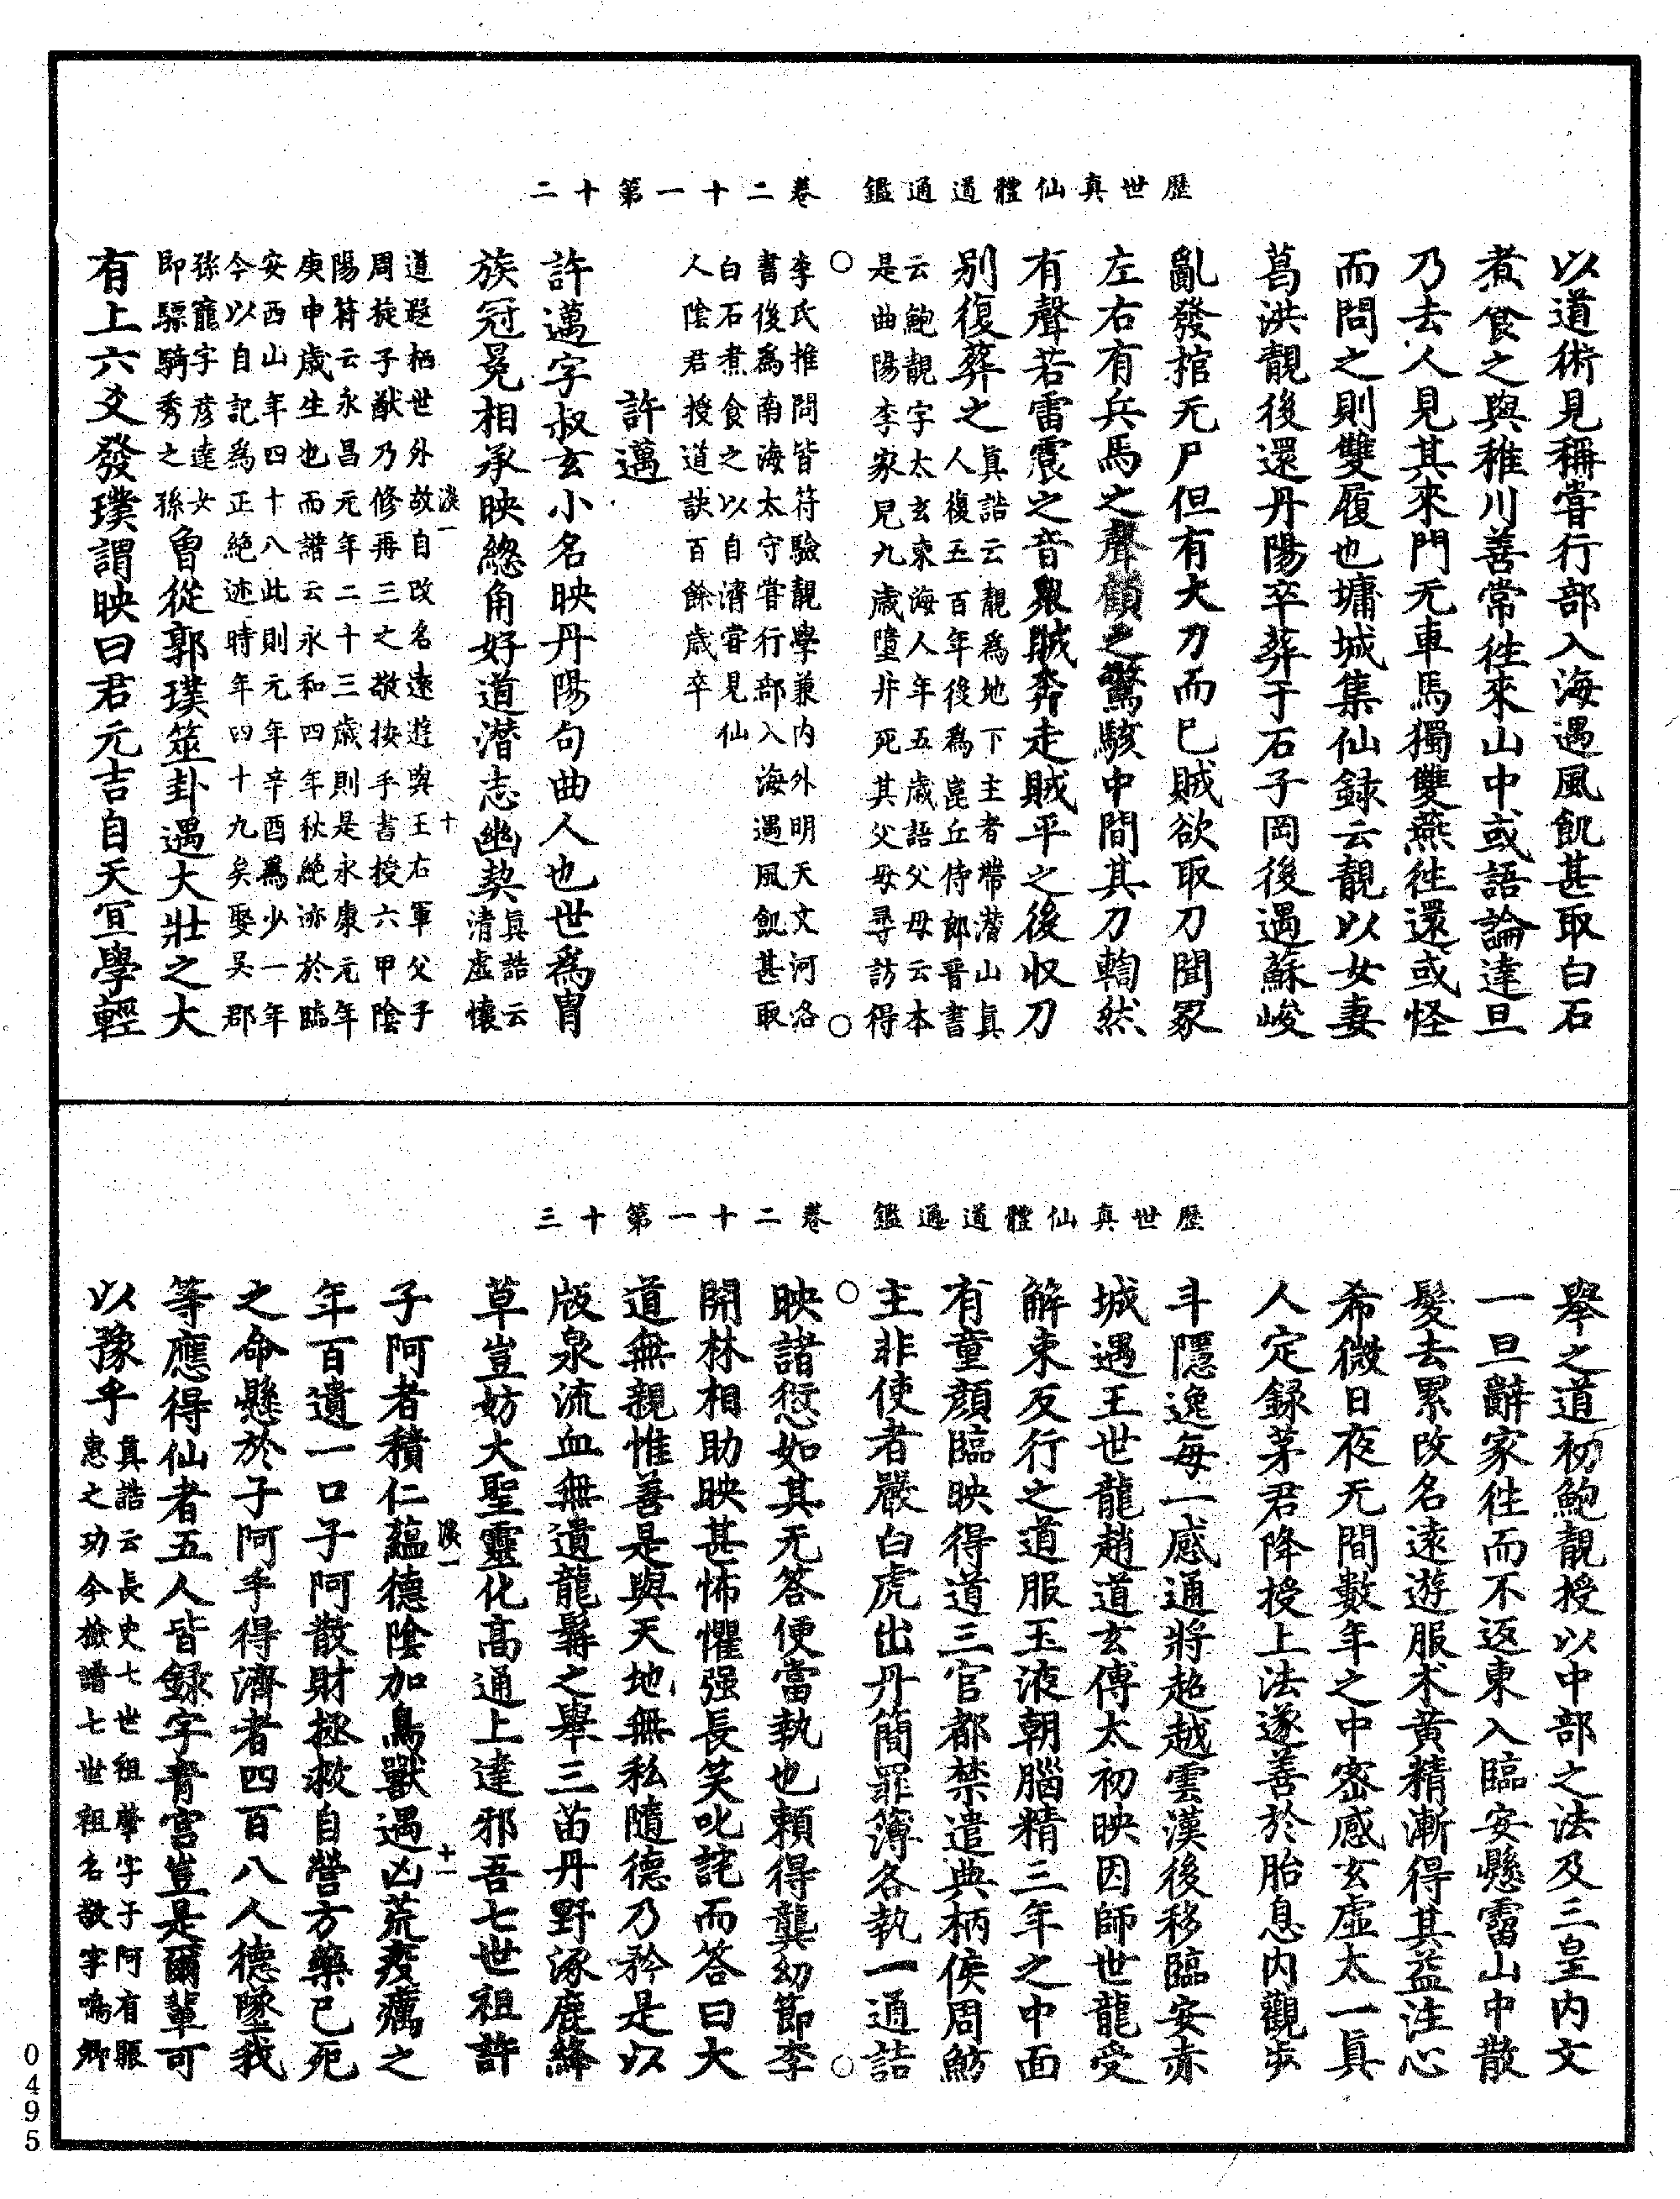 歷世真仙體道通鑑　卷二十一第十二
以道術見稱嘗行部入海遇風飢甚取白石
煮食之與稚川善常徃來山中或語論達旦
乃去人見其來門无車馬獨雙燕徃還或怪
而問之則雙履也墉城集仙録云靚以女妻
葛洪靚後還丹陽卒葬于石子岡後遇蘇峻
亂發棺无尸但有大刀而已賊欲取刀聞冢
左右有兵馬之聲顧之驚駭中間其刀輷然
有聲若雷震之音衆賊奔走賊平之後收刀
別復葬之真誥云靚爲地下主者帶潜山真
人復五百年後爲崑丘侍郎晉書
云鮑靚字太玄東海人年五歲語父母云本
是曲陽李家兒九歲墮井死其父母尋訪得
李氏推問皆符驗靚學兼内外明天文河洛
書後爲南海太守嘗行部入海遇風飢甚取
白石煮食之以自濟嘗見仙
人陰君授道訣百餘歲卒
許邁
許邁字叔玄小名映丹陽句曲人也世爲胄
族冠冕相承映總角好道潜志幽契真誥云
清虛懷
道遐栖世外故自改名遠遊與王右軍父子
周旋子猷乃修再三之敬按手書授六甲陰
陽符云永昌元年二十三歲則是永康元年
庚申歲生也而譜云永和四年秋絶迹於臨
安西山年四十八此則元年辛酉爲少一年
今以自記爲正絶迹時年四十九矣娶吳郡
孫寵字彦達女
即驃騎秀之孫曾從郭璞筮卦遇大壯之大
有上六爻發璞謂映曰君元吉自天宜學輕
淡一　十
歷世真仙體道通鑑　卷二十一第十三
舉之道初鮑靚授以中部之法及三皇内文
一旦辭家徃而不返東入臨安懸霤山中散
髮去累改名遠遊服朮黄精漸得其益注心
希微日夜无間數年之中密感玄虛太一真
人定録茅君降授上法遂善於胎息内觀步
斗隱逸每一感通將超越雲漢後移臨安赤
城遇王世龍趙道玄傅太初映因師世龍受
解束反行之道服玉液朝腦精三年之中面
有童顔臨映得道三官都禁遣典柄侯周魴
主非使者嚴白虎出丹簡罪簿各執一通詰
映諸愆如其无答便當執也賴得龔幼節李
開林相助映甚怖懼强長笑叱詫而答曰大
道無親惟善是與天地無私隨德乃矜是以
版泉流血無遺龍髯之舉三苗丹野涿鹿絳
草豈妨大聖靈化高通上達邪吾七世祖許
子阿者積仁蘊德陰加鳥獸遇凶荒疫癘之
年百遺一口子阿散財拯救自營方藥已死
之命懸於子阿手得濟者四百八人德墜我
等應得仙者五人皆録字青宫豈是爾輩可
以豫乎真誥云長史七世祖肇字子阿有賑
惠之功今檢譜七世祖名敬字鳴卿
淡一　十一
0495